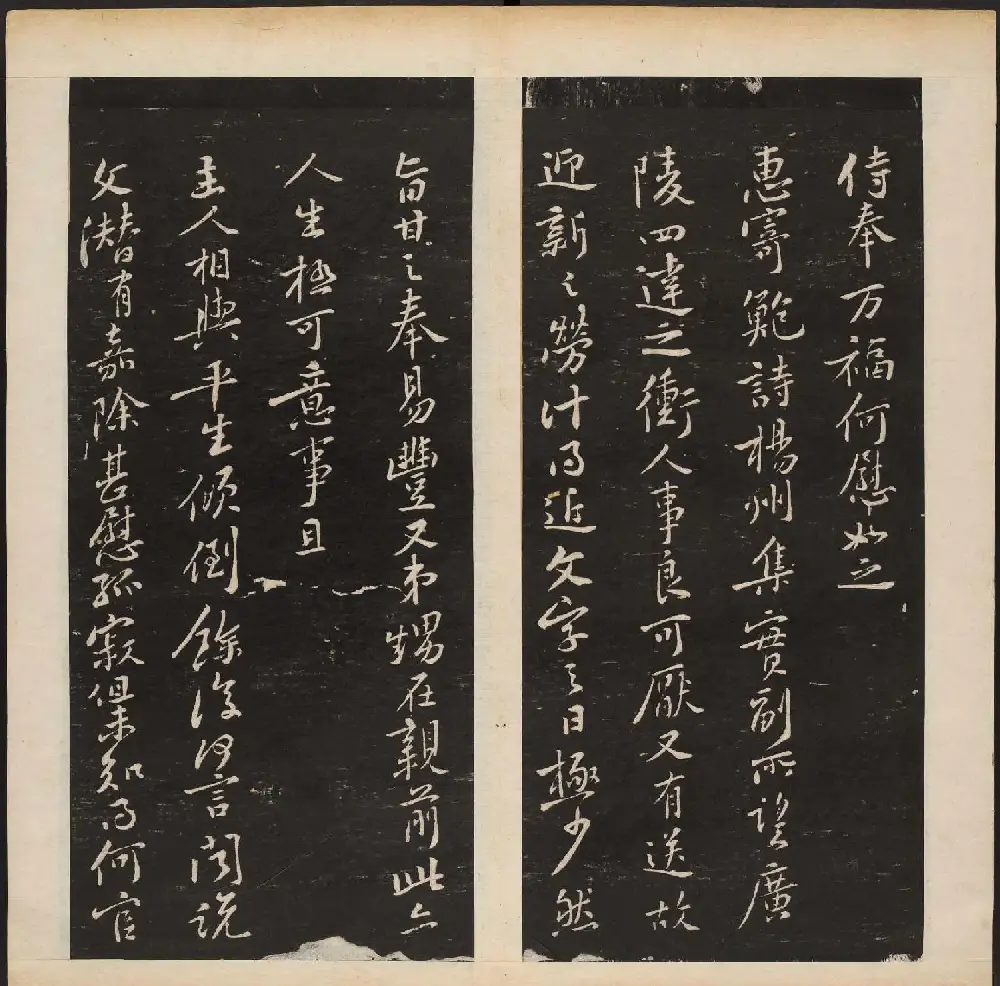 侍奉万福何慰如之
惠寄鲍詩楊州集實副所望廣
陵四達之衝人事良可厭又有送故
迎新之勞計得近文字之日極少然
旨甘之奉易豐又弟甥在親前此亦
人生極可意事且
主人相與平生傾倒餘復何言聞説
文潛有嘉除甚慰孤寂但未知得何官